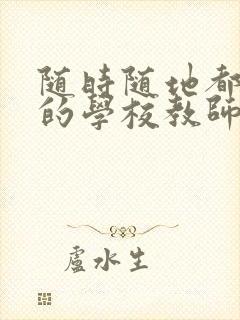 随時随地都
的學校教師
盧水生